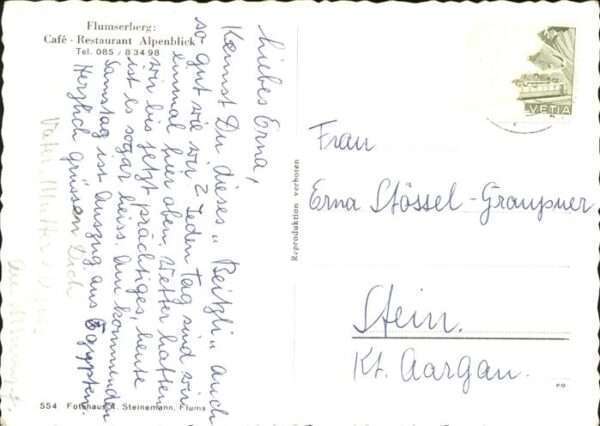 Flumserberg:
Café - Restaurant Alpenblick
Tel. 085 / 8 34 98
Liebes Erna,
Kennst Du dieses „Beizli" auch
so gut wie wir? Jeden Tag sind wir
einmal hier oben, Wetter hatten
wir bis jetzt prächtiges, heute
ist es sogar heiss. Am kommenden
Samstag ist Auszug aus Egypten.
Herzlich grüssen Dich
Vater, Mutter
Reproduktion verboten
HELVETIA
Frau
Erna Stössel-Graupner
Stein.
Kt. Aargau.
554 Fotohaus A. Steinemann, Flums